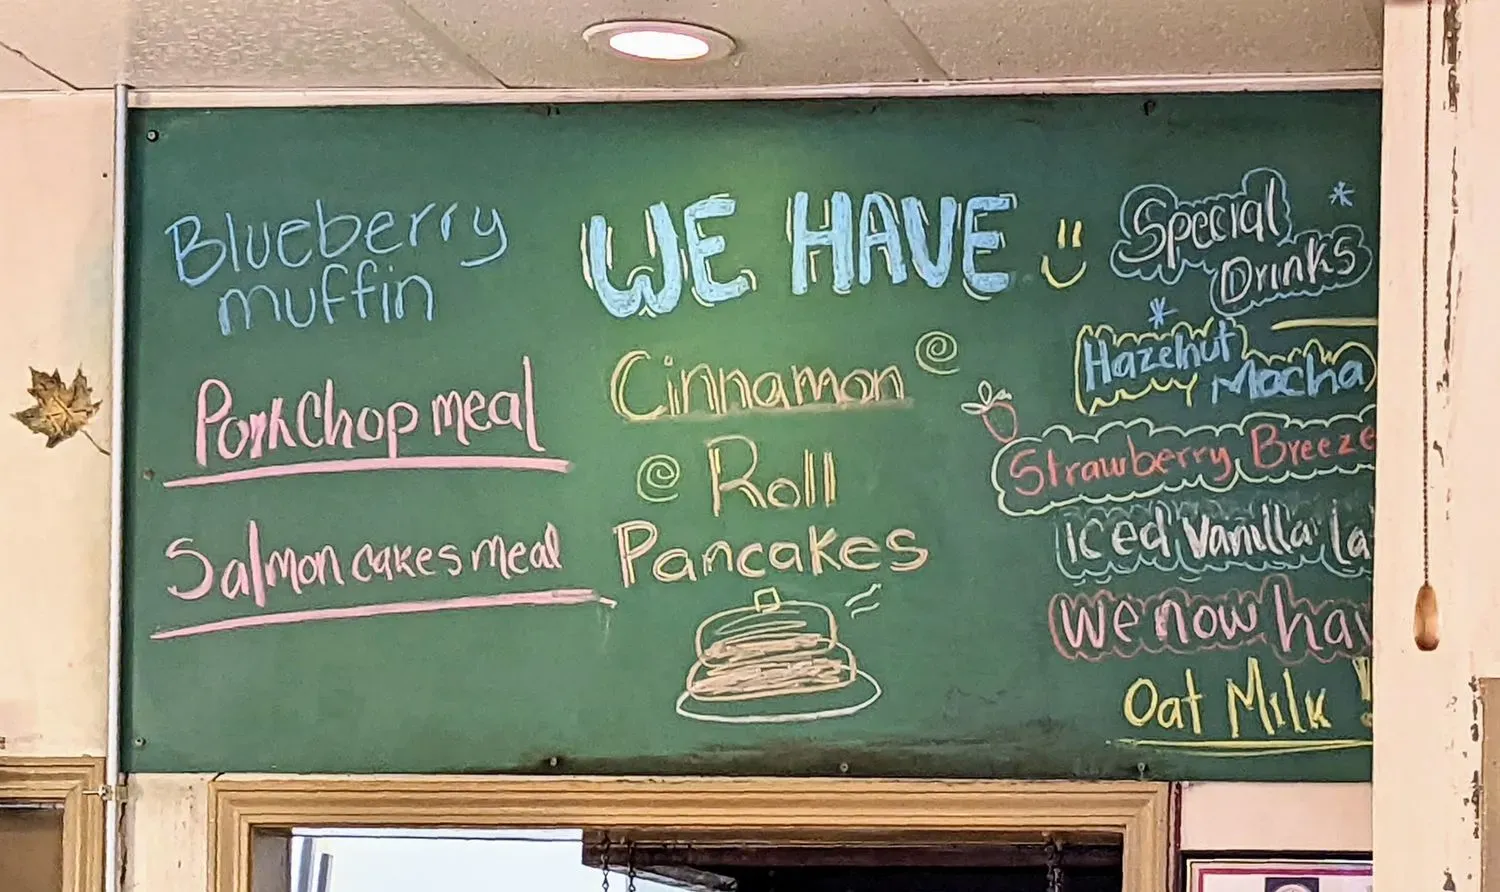 Blueberry
muffin
Pork Chop meal
Salmon cakes meal
WE HAVE
Cinnamon
Roll
Pancakes
Special
Drinks
Hazelnut
Mocha
Strawberry Breeze
Iced Vanilla La
We now hav
Oat Milk !